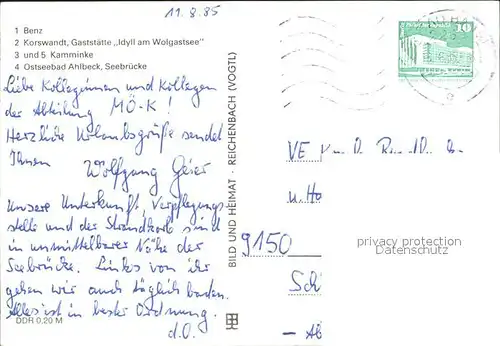 11.8.85
1 Benz
2 Korswandt, Gaststätte „Idyll am Wolgastsee"
3 und 5 Kamminke
4 Ostseebad Ahlbeck, Seebrücke
Liebe Kolleginnen und Kollegen
der Abteilung MÖ-K!
Herzliche Urlaubsgrüße sendet
Ihnen
Wolfgang Geier
Unsere Unterkunft, Verpflegungs-
stelle und der Strandkorb sind
in unmittelbarer Nähe der
Seebrücke. Links von ihr
gehen wir auch täglich baden.
Alles ist in bester Ordnung.
d.O.
DDR 0,20 M
BILD UND HEIMAT · REICHENBACH (VOGTL)
10
VE
u. Ho
9150
privacy protection
Datenschutz
- Ab